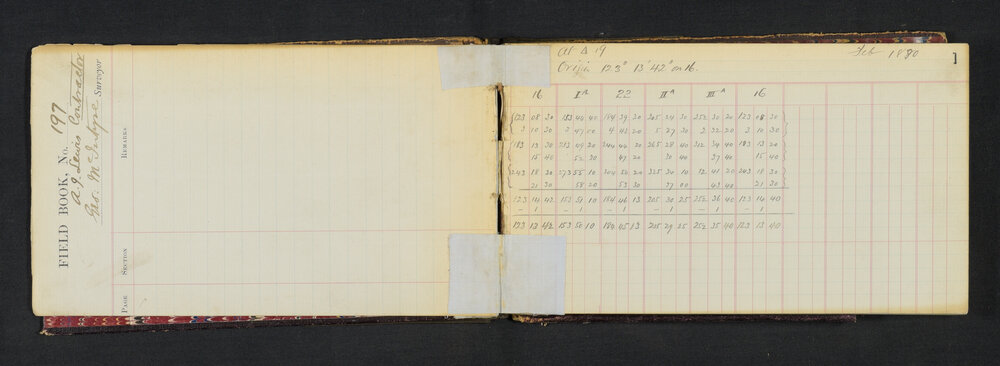 FIELD BOOK, No. 197
A. J. Lewis Contractor
Geo. McIntyre Surveyor
REMARKS
SECTION
PAGE
At Δ 19 Feb 1880 1
Origin 123° 13' 42" on 16.
16 I^A 22 II^A III^A 16
123 08 30 153 44 40 184 39 20 205 24 30 252 30 20 123 08 30
3 10 30 2 47 00 4 41 20 5 27 30 2 32 20 3 10 30
183 13 20 213 49 20 244 44 20 265 28 40 312 34 40 183 13 20
15 40 52 30 47 20 30 40 37 40 15 40
243 18 20 273 55 10 304 50 20 325 34 10 12 41 20 243 18 30
21 30 58 20 53 30 37 00 43 40 21 30
123 14 42 153 51 10 184 46 13 205 30 25 252 36 40 123 14 40
– 1 – 1 – 1 – 1 – 1 – 1
123 13 42 153 50 10 184 45 13 205 29 25 252 35 40 123 13 40